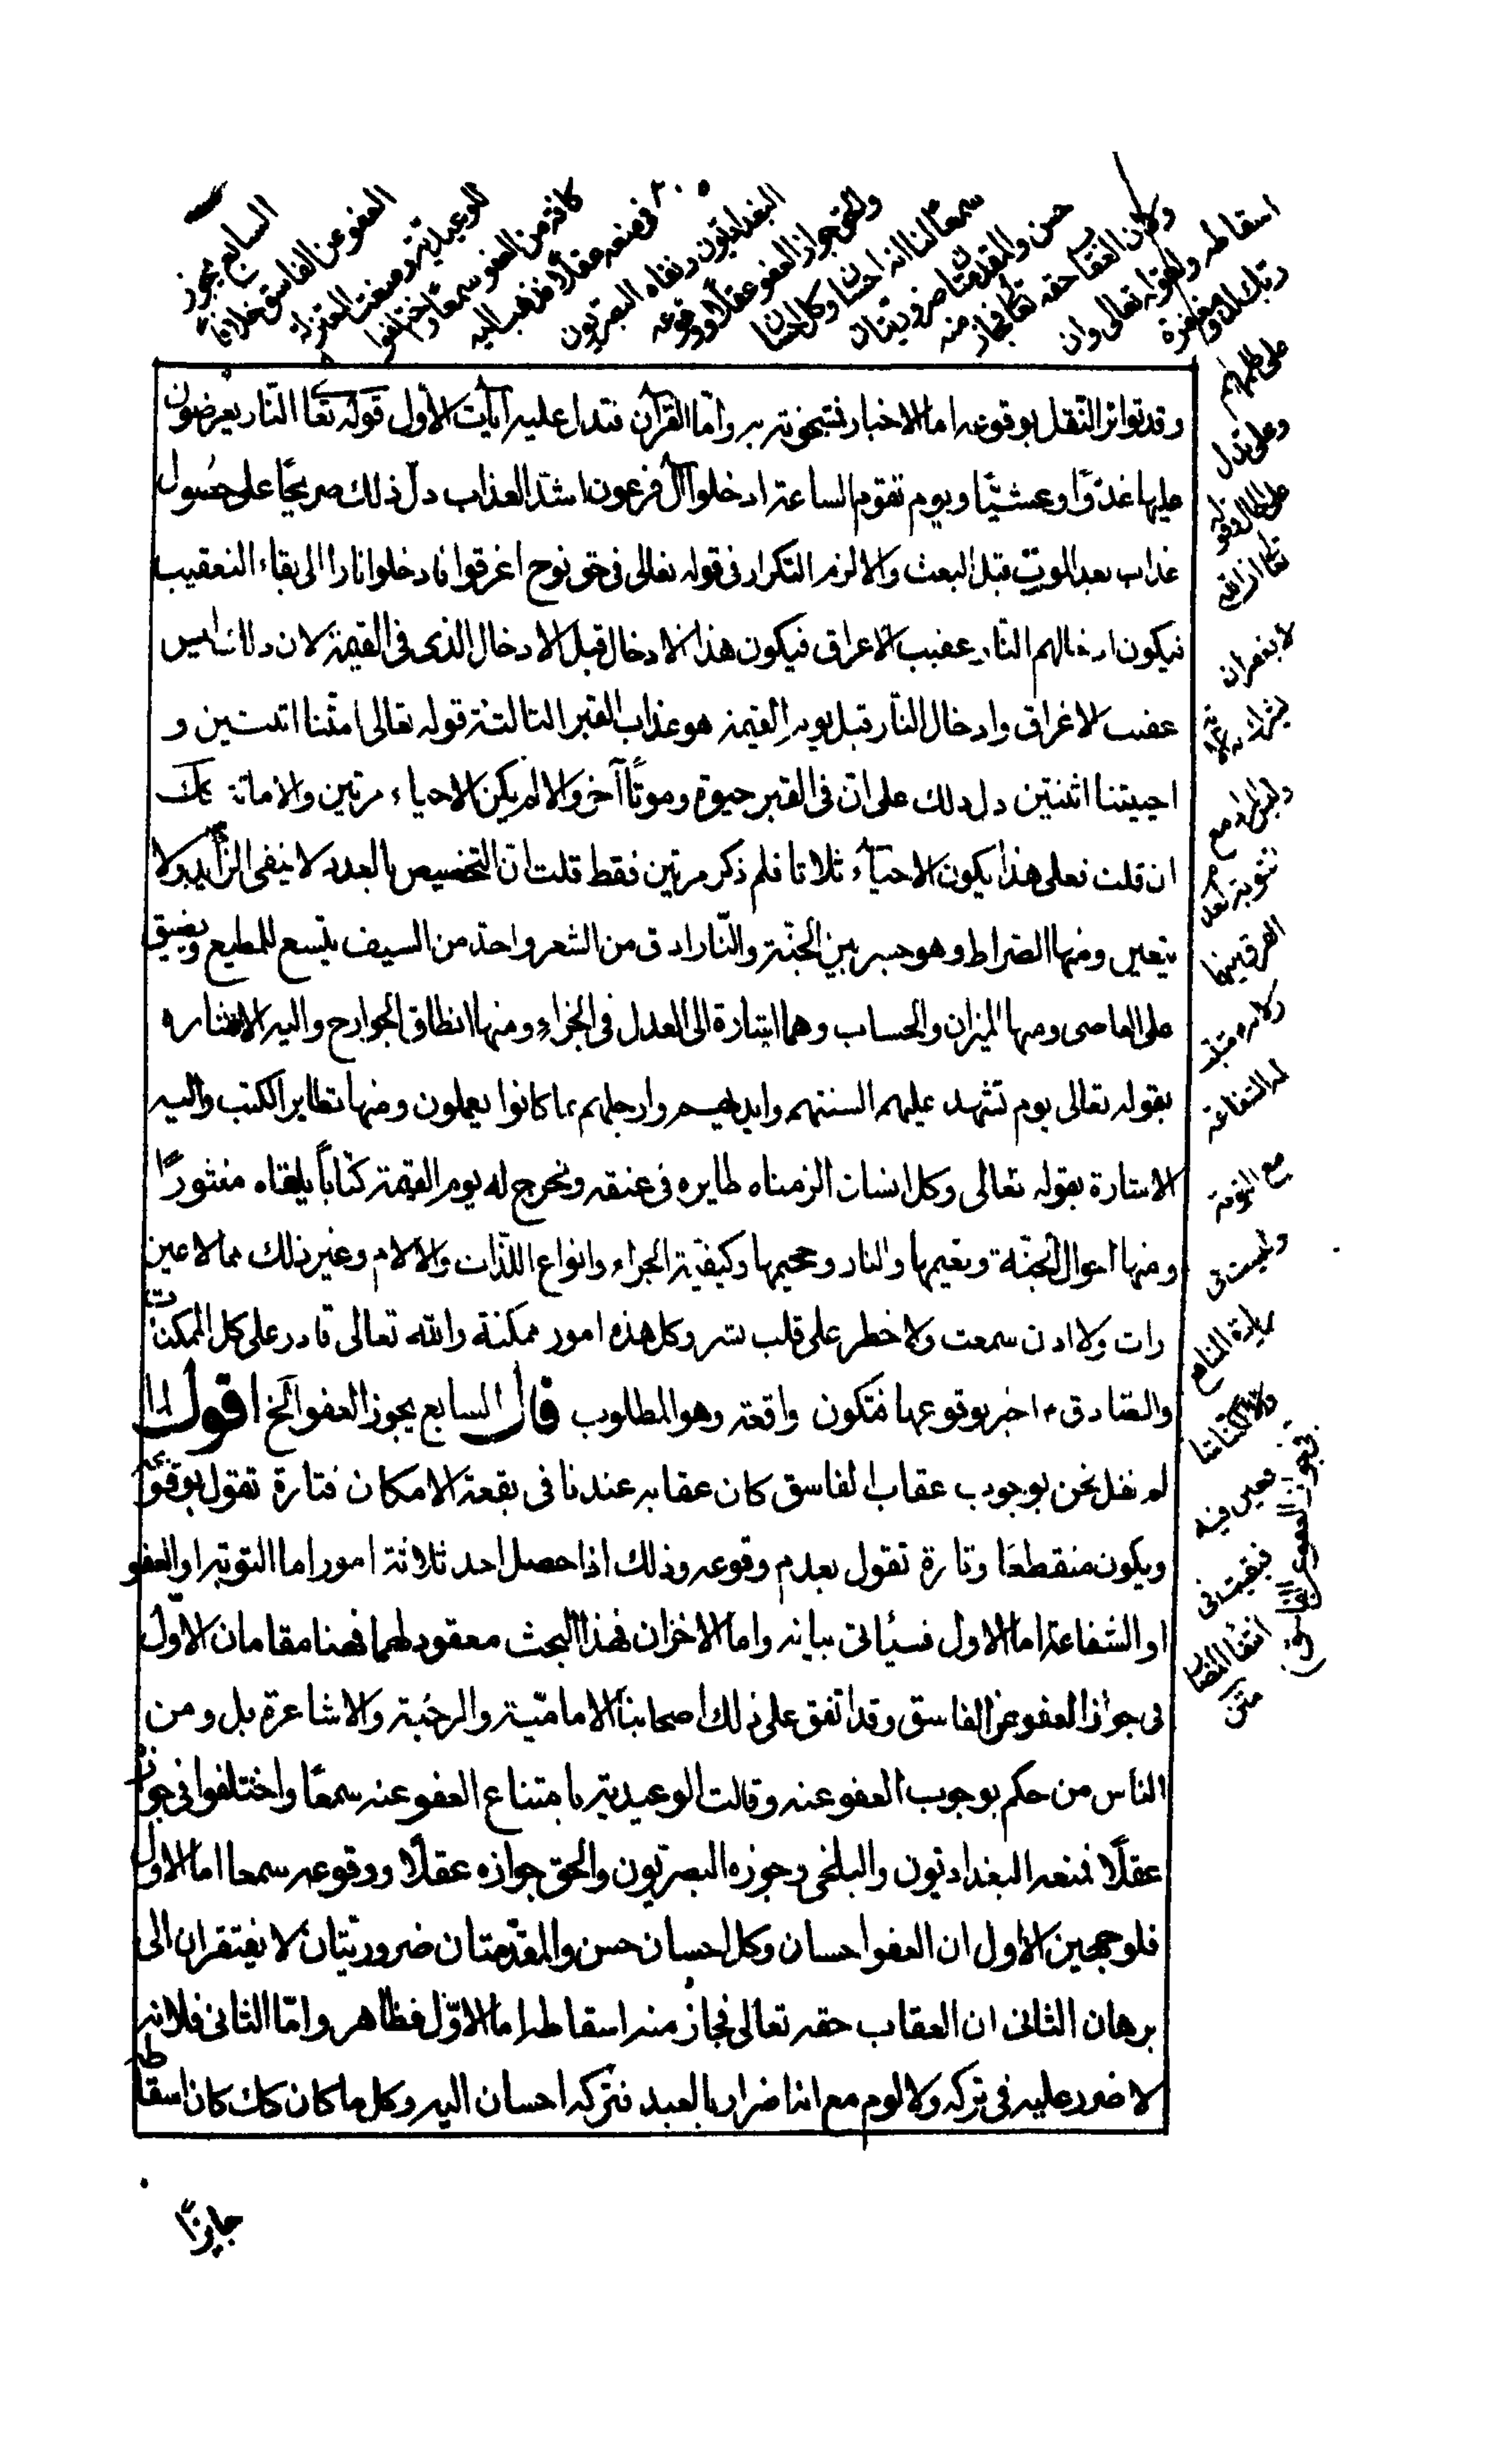 ٢٠٥
السابع يجوز
العفو عن الفاسق خلافا
للوعيدية ومنعت المعتزلة
كافة من العفو سمعا واختلفوا
فى منعه عقلا فذهب اليه
البغداديون ونفاه البصريون
والحق جواز العفو عقلا ووقوعه
سمعا لنا انه احسان وكل احسان
حسن والمقدمتان ضروريتان
ولان العقاب حقه تعالى فجاز منه
اسقاطه ولقوله تعالى وان
ربك لذو مغفرة
على ظلمهم
وعلى تدل
على الحال ولقوله
تعالى ان الله
لا يغفر ان
يشرك به
وليس المراد مع
توبة لعدم
الفرق بينهما
وقد تواتر النقل بوقوعه اما الاخبار فشحونة به واما القرآن فتدل عليه آيات الاول قوله تعا النار يعرضون
عليها غدوّا وعشيّا ويوم تقوم الساعة ادخلوا آل فرعون اشدّ العذاب دلّ ذلك صريحًا على حصول
عذاب بعد الموت قبل البعث والا لزم التكرار فى قوله تعالى فى حق نوح اغرقوا فادخلوا نارا الى بفاء التعقيب
فيكون ادخالهم النار عقيب الاغراق فيكون هذا الادخال قبل الادخال الذى فى القيمة لان ذلك ليس
عقيب الاغراق وادخال النار قبل يوم القيمة هو عذاب القبر الثالثة قوله تعالى امتّنا اثنتين و
احييتنا اثنتين دل ذلك على انّ فى القبر حيوة وموتًا آخر والا لم يكن الاحياء مرتين والاماتة كك
ان قلت فعلى هذا يكون الاحياء ثلاثا فلم ذكر مرتين فقط قلت انّ التخصيص بالعدد لا ينفى الزايد ولا
يتعين ومنها الصراط وهو جسر بين الجنّة والنّار ادق من الشعر واحدّ من السيف يتسع للمطيع ويضيق
على العاصى ومنها الميزان والحساب وهما اشارة الى العدل فى الجزاء ومنها انطاق الجوارح واليه الاشارة
بقوله تعالى يوم تشهد عليهم السنتهم وايديهم وارجلهم بما كانوا يعملون ومنها تطاير الكتب واليه
الاشارة بقوله تعالى وكل انسان الزمناه طايره فى عنقه ونخرج له يوم القيمة كتاباً يلقاه منشورًا
ومنها احوال الجنّة ونعيمها والنار وجحيمها وكيفية الجزاء وانواع اللّذات والآلام وغير ذلك مما لا عين
رات ولا اذن سمعت ولا خطر على قلب بشر وكل هذه امور ممكنة والله تعالى قادر على كل الممكنات
والصادق ع اخبر بوقوعها فتكون واقعة وهو المطلوب قال السابع يجوز العفو الخ اقول لما
لم نقل نحن بوجوب عقاب الفاسق كان عقابه عندنا فى بقعة الامكان فتارة تقول بوقوعه
ويكون منقطعًا وتارة تقول بعدم وقوعه وذلك اذا حصل احد ثلاثة امور اما التوبة او العفو
او الشفاعة اما الاول فسيأتى بيانه واما الاخران فهذا البحث معقود لهما فهنا مقامان الاوّل
فى جواز العفو عن الفاسق وقد اتفق على ذلك اصحابنا الاماميّة والمرجئة والاشاعرة بل ومن
الناس من حكم بوجوب العفو عنه وقالت الوعيدية بامتناع العفو عنه سمعًا واختلفوا فى جوازه
عقلًا فمنعه البغداديون والبلخى وجوزه البصريون والحق جوازه عقلًا ووقوعه سمعا اما الاول
فلوجهين الاول ان العفو احسان وكل احسان حسن والمقدّمتان ضروريتان لا يفتقران الى
برهان الثانى ان العقاب حقه تعالى فجاز منه اسقاطه اما الاوّل فظاهر وامّا الثانى فلانه
لا ضرر عليه فى تركه ولا لوم مع انه اضرار بالعبد فتركه احسان اليه وكل ما كان كك كان اسقاطه
جايزًا